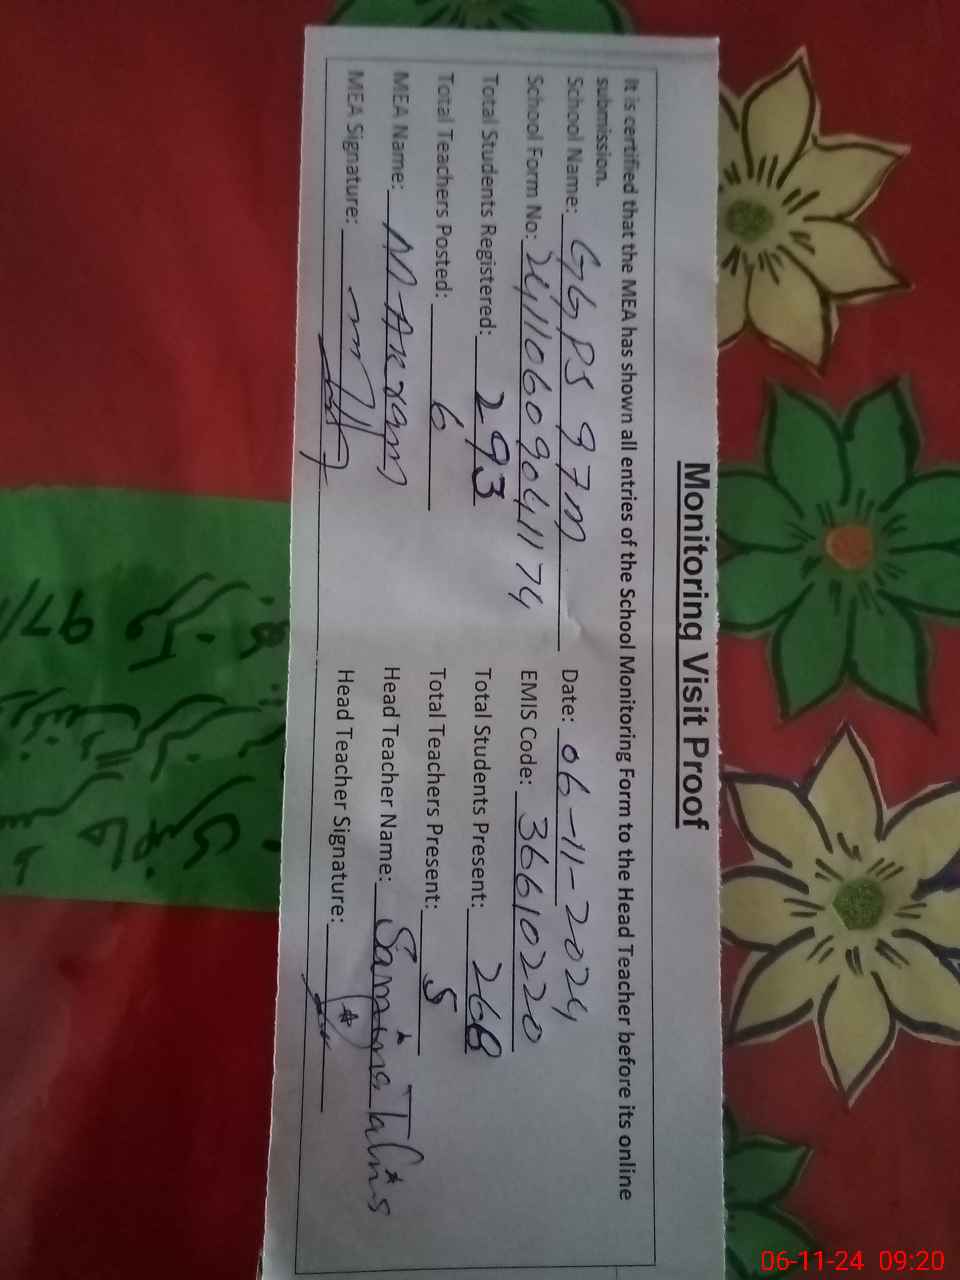 Monitoring Visit Proof
It is certified that the MEA has shown all entries of the School Monitoring Form to the Head Teacher before its online
submission.
School Name: GGPS 97M Date: 06-11-2024
School Form No: 24110609041174 EMIS Code: 36610220
Total Students Registered: 293 Total Students Present: 268
Total Teachers Posted: 6 Total Teachers Present: 5
MEA Name: M. Akram Head Teacher Name: Samina
MEA Signature: Head Teacher Signature:
97/
06-11-24 09:20